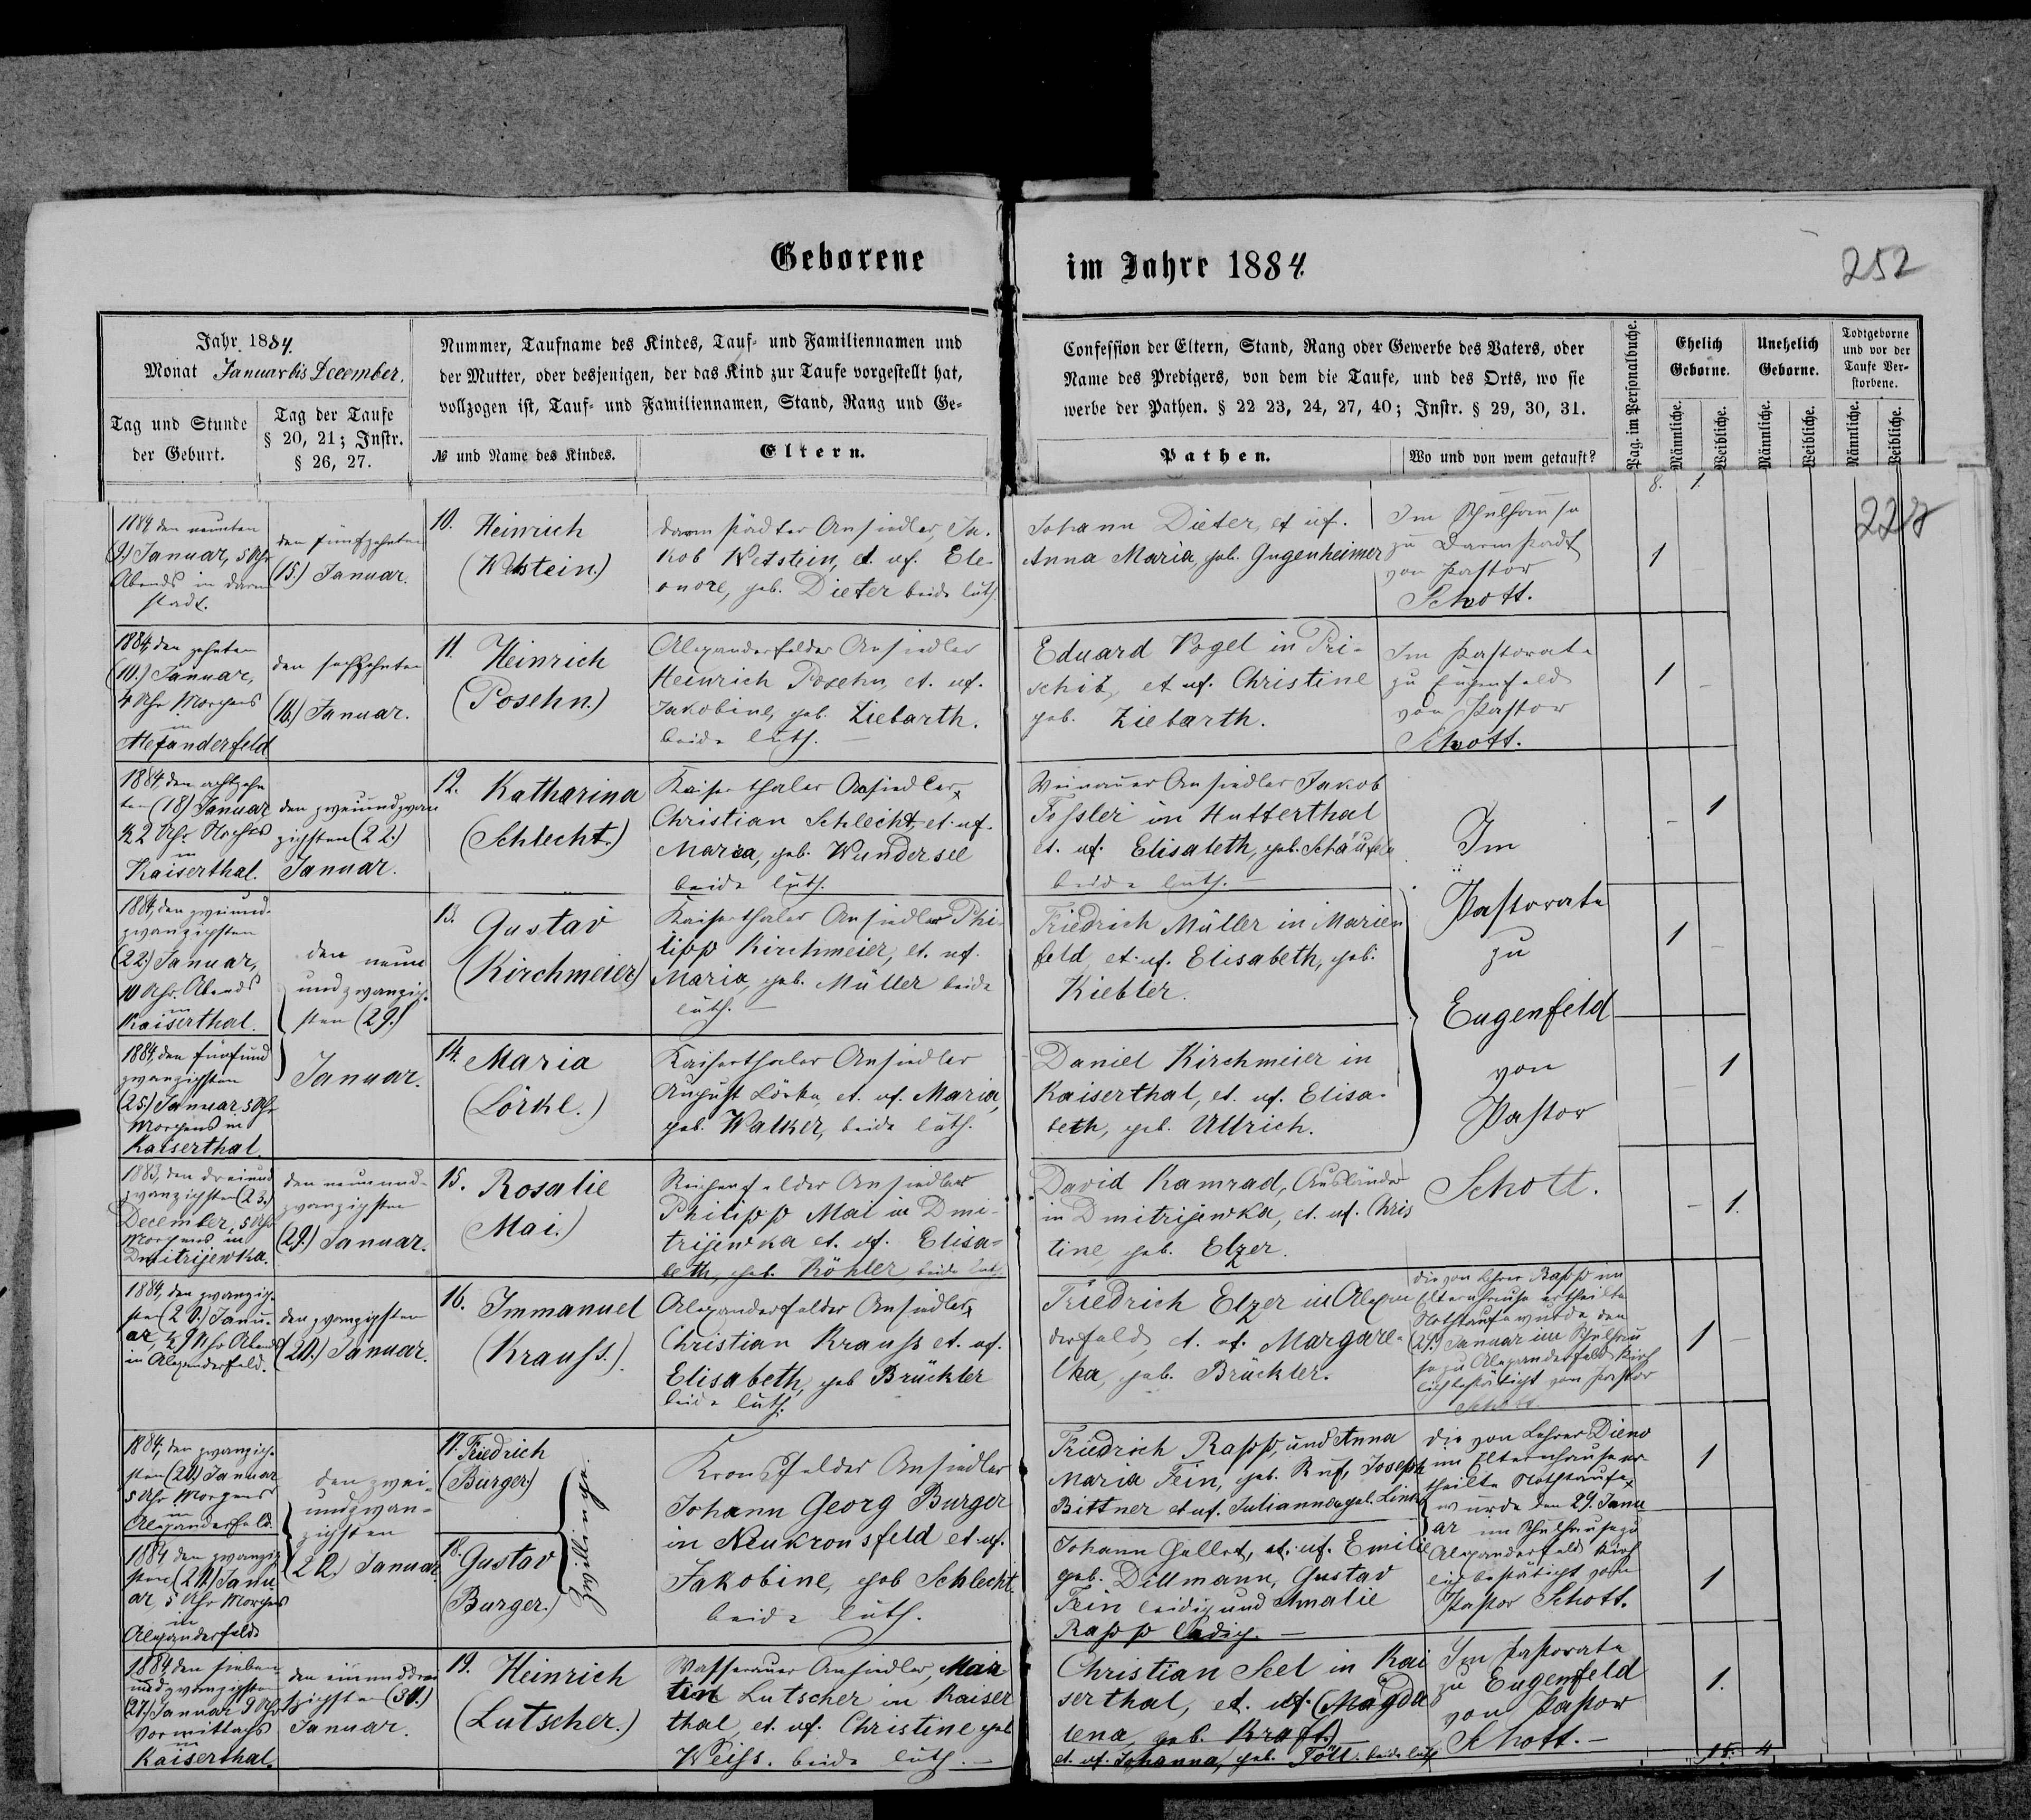 Geborene im Jahre 1884.
252
Jahr 1884.
Monat Januar bis December.
Tag und Stunde
der Geburt.
Tag der Taufe
§ 20, 21; Instr.
§ 26, 27.
Nummer, Taufname des Kindes, Tauf- und Familiennamen und
der Mutter, oder desjenigen, der das Kind zur Taufe vorgestellt hat,
vollzogen ist, Tauf- und Familiennamen, Stand, Rang und Ge-
№ und Name des Kindes.
Eltern.
Confession der Eltern, Stand, Rang oder Gewerbe des Vaters, oder
Name des Predigers, von dem die Taufe, und des Orts, wo sie
werbe der Pathen. § 22 23, 24, 27, 40; Instr. § 29, 30, 31.
Pathen.
Wo und von wem getauft?
Pag. im Personalbuche.
Ehelich
Geborne.
Unehelich
Geborne.
Todtgeborne
und vor der
Taufe Ver-
storbene.
Männliche.
Weibliche.
Männliche.
Weibliche.
Männliche.
Weibliche.
8. 1.
1884 den neunten
(9.) Januar, 5 Uhr
Abends in Darm
stadt.
den fünfzehnten
(15.) Januar.
10. Heinrich
(Wetstein.)
Darmstädter Ansiedler, Ja-
kob Wetstein, et. ux. Ele-
onore, geb. Dieter beide luth.
Johann Dieter, et ux.
Anna Maria, geb. Gugenheimer
Im Schulhause
zu Darmstadt
von Pastor
Schott.
1
1884, den zehnten
(10.) Januar,
4 Uhr Morgens
in
Alexanderfeld
den sechzehnten
(16.) Januar.
11. Heinrich
(Posehn.)
Alexanderfelder Ansiedler
Heinrich Posehn, et. ux.
Jakobine, geb. Ziebarth.
beide luth.
Eduard Vogel in Pri-
schib, et ux. Christine
geb. Ziebarth.
Im Pastorate
zu Eugenfeld
von Pastor
Schott.
1
1884, den achtzehn
ten (18) Januar
½ 2 Uhr Nachts
in
Kaiserthal.
den zweiundzwan
zigsten (22.)
Januar.
12. Katharina
(Schlecht.)
Kaiserthaler Ansiedler
Christian Schlecht, et. ux.
Maria, geb. Wundersee
beide luth.
Weinauer Ansiedler Jakob
Fessler in Hutterthal
et. ux. Elisabeth, geb. Schäufele
beide luth.
Im
Pastorate
zu
Eugenfeld
von
Pastor
Schott.
1
1884, den zweiund-
zwanzigsten
(22.) Januar,
10 Uhr Abends
in
Kaiserthal.
den neun
undzwanzig-
sten (29.)
Januar.
13. Gustav
(Kirchmeier)
Kaiserthaler Ansiedler Phi-
lipp Kirchmeier, et. ux.
Maria, geb. Müller beide
luth.
Friedrich Müller in Marien
feld, et. ux. Elisabeth, geb.
Kiebler.
1
1884, den fünfund
zwanzigsten
(25.) Januar, 5 Uhr
Morgens in
Kaiserthal.
14. Maria
(Lörke.)
Kaiserthaler Ansiedler
August Lörke, et. ux. Maria,
geb. Walker, beide luth.
Daniel Kirchmeier in
Kaiserthal, et. ux. Elisa-
beth, geb. Ullrich.
1
1883, den dreiund
zwanzigsten (23.)
December, 5 Uhr
Morgens in
Dmitrijewka.
den neunund-
zwanzigsten
(29.) Januar.
15. Rosalie
(Mai.)
Reichenfelder Ansiedler
Philipp Mai in Dmi-
trijewka et. ux. Elisa-
beth, geb. Röhler, beide luth.
David Kamrad, Ausländer
in Dmitrijewka, et. ux. Chris
tine, geb. Elzer.
1.
1884, den zwanzig-
sten (20.) Janu-
ar, ½ 9 Uhr Abends
in Alexanderfeld.
den zwanzigsten
(20.) Januar.
16. Immanuel
(Krauss.)
Alexanderfelder Ansiedler
Christian Krauss et. ux.
Elisabeth, geb Brückler
beide luth.
Friedrich Elzer in Alexan
derfeld, et. ux. Margare-
tha, geb. Brückler.
Die von Lehrer Rapp im
Elternhause ertheilte
Nothtaufe wurde den
(29.) Januar im Schulhau
se zu Alexanderfeld kirch
lich bestätigt von Pastor
Schott.
1
1884, den zwanzig-
sten (20.) Januar
5 Uhr Morgens
in
Alexanderfeld.
den zwei-
undzwan-
zigsten
(22.) Januar
17. Friedrich
(Burger)
Zwillinge.
Kronsfelder Ansiedler
Johann Georg Burger
in Neukronsfeld et. ux.
Jakobine, geb Schlecht.
beide luth.
Friedrich Rapp, und Anna
Maria Fein, geb. Ruf, Joseph
Bittner et ux. Julianna geb. Link
Die von Lehrer Dieno
im Elternhause er-
theilte Nothtaufe
wurde den 29. Janu
ar im Schulhause zu
Alexanderfeld kirch
lich bestätigt von
Pastor Schott.
1
1884 den zwanzig
sten (20.) Janu
ar, 5 Uhr Morgens
in
Alexanderfeld
18. Gustav
(Burger.)
Johann Gellert, et. ux. Emilie
geb. Dillmann, Gustav
Fein ledig und Amalie
Rapp ledig.
1
1884 den sieben
undzwanzigsten
(27.) Januar 9 Uhr
Vormittags
in
Kaiserthal.
den einunddrei
szigsten (31.)
Januar.
19. Heinrich
(Lutscher.)
Wasserauer Ansiedler, Mar
tin Lutscher in Kaiser
thal, et. ux. Christine geb
Weiss. beide luth.
Christian Seel in Kai
serthal, et. ux. (Magda
lena, geb. Kraft.)
et. ux. Johanna, geb. Föll. beide luth
Im Pastorate
zu Eugenfeld
von Pastor
Schott.
1.
15. 4